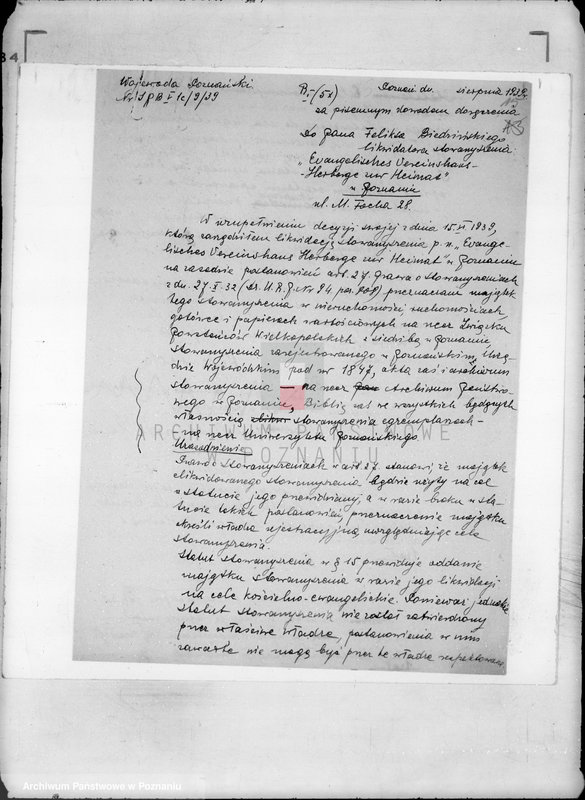 Wojewoda Poznański.
Poznań dn. sierpnia 1939.
za pisemnym dowodem doręczenia
Do Pana Feliksa Biedzińskiego
likwidatora stowarzyszenia:
„Evangelisches Vereinshaus-
-Herberge zur Heimat"
w Poznaniu
ul. M. Focha 28.
W uzupełnieniu decyzji swojej z dnia 15. 1939,
którą zarządziłem likwidację stowarzyszenia p.n. „Evange-
lisches Vereinshaus Herberge zur Heimat" w Poznaniu
na zasadzie postanowień art. 27. prawa o stowarzyszeniach
z dn. 27.X.32 (Dz. U. R. P. Nr 94 poz. 808) przeznaczam mająt-
tego stowarzyszenia w nieruchomości, ruchomościach,
gotówce i papierach wartościowych na rzecz Związku
Powstańców Wielkopolskich z siedzibą w Poznaniu,
stowarzyszenia zarejestrowanego w Poznańskim Urzę-
dzie Wojewódzkim pod nr 1847, akta zaś i archiwum
stowarzyszenia — na rzecz Archiwum Państwo-
wego w Poznaniu, Biblię zaś we wszystkich będących
własnością stowarzyszenia egzemplarzach —
na rzecz Uniwersytetu Poznańskiego.
Uzasadnienie
Prawo o stowarzyszeniach w art. 27. stanowi, że majątek
zlikwidowanego stowarzyszenia będzie użyty na cel
w statucie jego przewidziany, a w razie braku w sta-
tucie takich postanowień, przeznaczenie majątku
określi władza rejestracyjna, uwzględniając cele
stowarzyszenia.
Statut stowarzyszenia w § 15 przewiduje oddanie
majątku stowarzyszenia w razie jego likwidacji
na cele kościelno-ewangelickie. Ponieważ jednakże
statut stowarzyszenia nie został zatwierdzony
przez właściwe władze, postanowienia w nim
zawarte nie mogą być przez te władze respektowane
ARCHIWUM PAŃSTWOWE
W POZNANIU
Archiwum Państwowe w Poznaniu